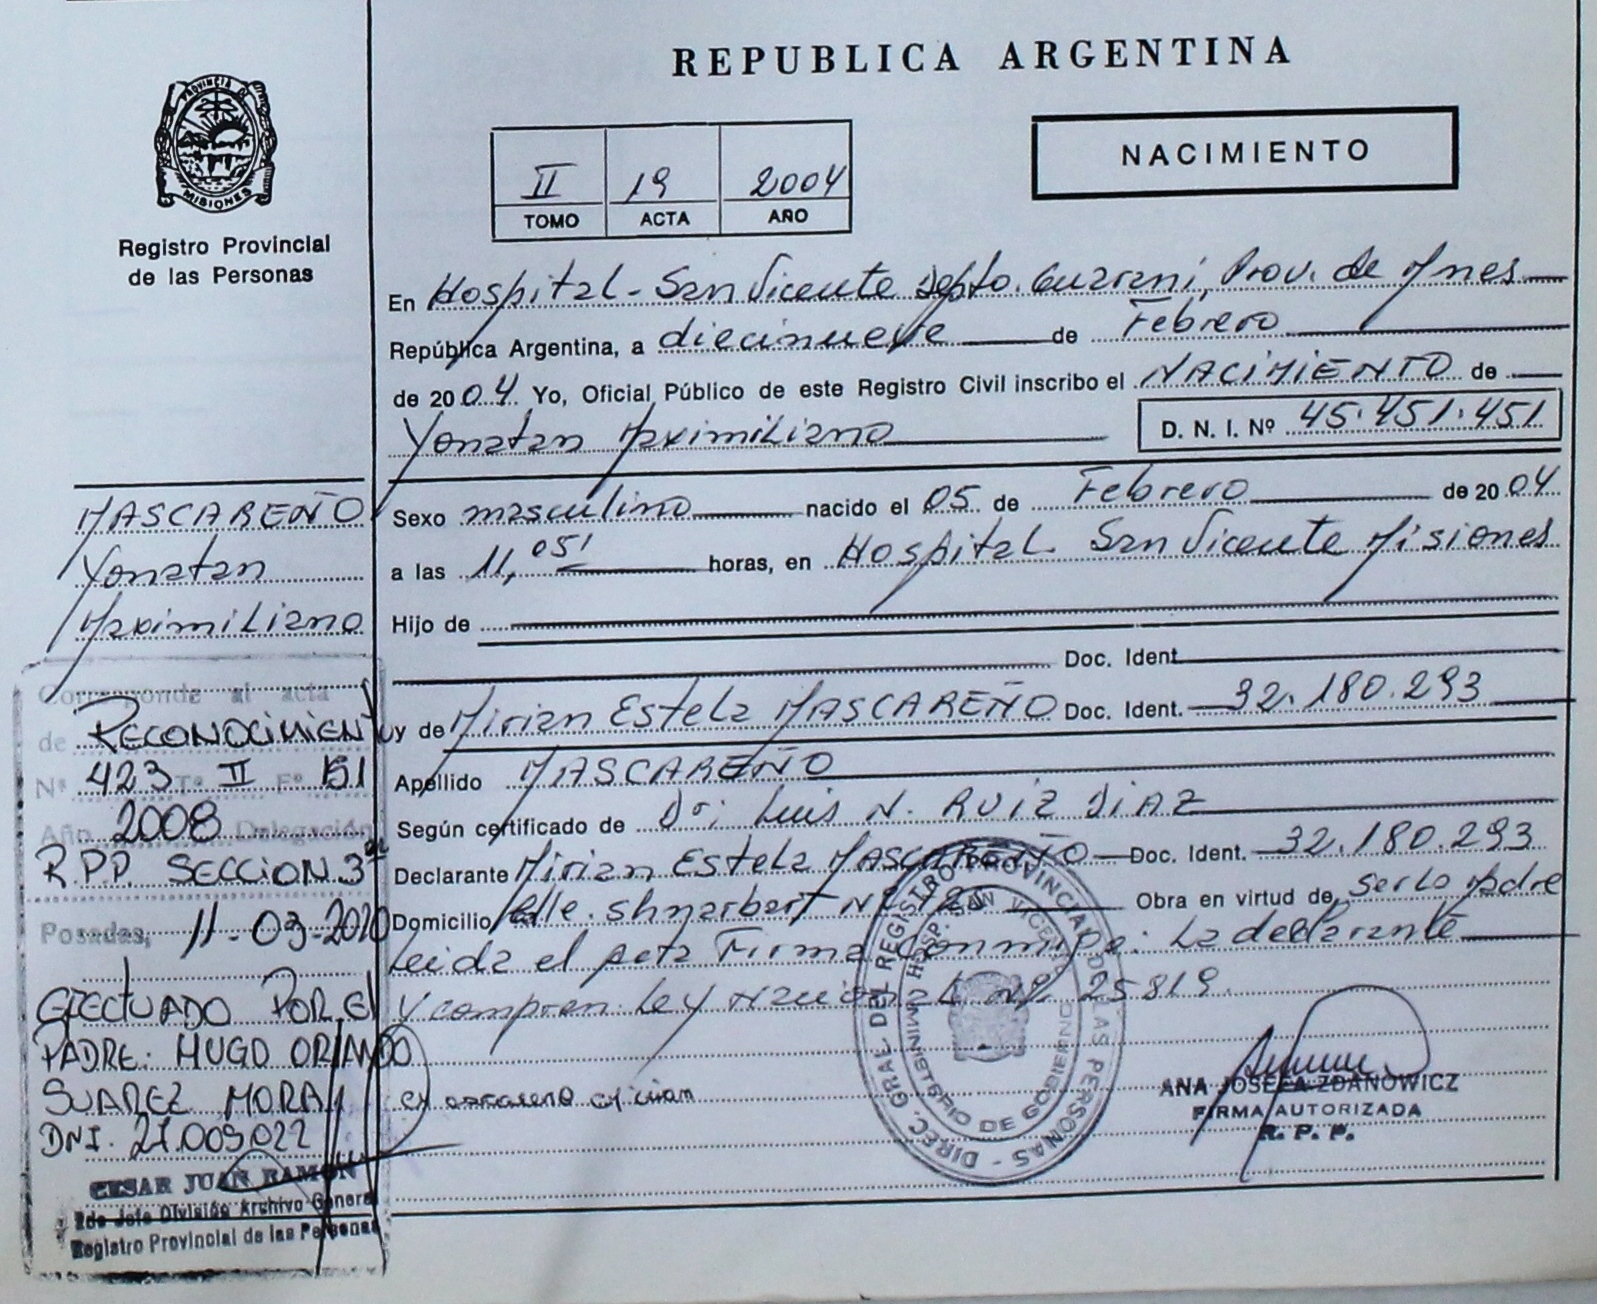 REPUBLICA ARGENTINA
PROVINCIA DE MISIONES
Registro Provincial
de las Personas
NACIMIENTO
II 19 2004
TOMO ACTA AÑO
En Hospital - San Vicente Depto. Guarani, Prov. de Mnes
República Argentina, a diecinueve de Febrero
de 2004 Yo, Oficial Público de este Registro Civil inscribo el NACIMIENTO de
Yonatan Maximiliano D. N. I. Nº 45.451.451
MASCAREÑO
Yonatan
Maximiliano
Sexo masculino nacido el 05 de Febrero de 2004
a las 11,05' horas, en Hospital San Vicente Misiones
Hijo de
Doc. Ident.
y de Mirian Estela MASCAREÑO Doc. Ident. 32.180.293
Apellido MASCAREÑO
Según certificado de Dr; Luis N. RUIZ DIAZ
Declarante Mirian Estela MASCAREÑO Doc. Ident. 32.180.293
Domicilio Calle. Nº 725 Obra en virtud de ser la Madre
Leida el acta Firma Conmigo: La declarante
Ley Nacional Nº 25819.
Corresponde al acta
de RECONOCIMIENTO
Nº 423 Tº II Fº 151
Año 2008 Delegación
R.P.P. SECCION 3ª
Posadas, 11-03-2010
EFECTUADO POR El
PADRE: HUGO ORLANDO
SUAREZ MORA
DNI. 27.009.022
CESAR JUAN RAMON
2do Jefe División Archivo General
Registro Provincial de las Personas
DIREC. GRAL. DEL REGISTRO PROVINCIAL DE LAS PERSONAS
MINISTERIO DE GOBIERNO
HOSP. SAN VICENTE
ANA JOSEFA ZDANOWICZ
FIRMA AUTORIZADA
R. P. P.